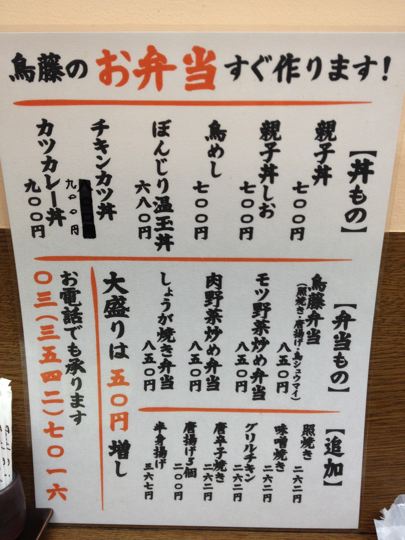 鳥藤のお弁当すぐ作ります!
【丼もの】
親子丼
七〇〇円
親子丼しお
七〇〇円
鳥めし
七〇〇円
ぼんじり温玉丼
六八〇円
チキンカツ丼
九〇〇円
カツカレー丼
九〇〇円
【弁当もの】
鳥藤弁当
(照焼き・唐揚げ・鳥シュウマイ)
八五〇円
モツ野菜炒め弁当
八五〇円
肉野菜炒め弁当
八五〇円
しょうが焼き弁当
八五〇円
【追加】
照焼き
二六二円
味噌焼き
二六二円
グリルチキン
二六二円
唐辛子焼き
二六二円
唐揚げ5個
二〇〇円
半身揚げ
三六七円
大盛りは五〇円増し
お電話でも承ります
〇三(三五四二)七〇一六